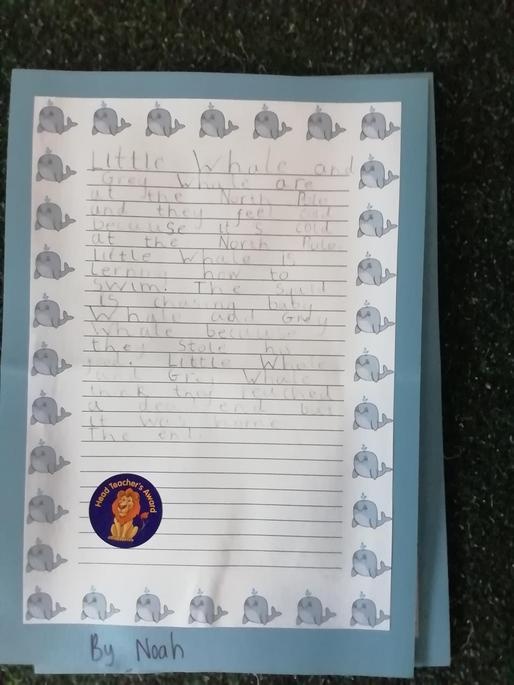 Little Whale and
Grey Whale are
at the North Pole
and they feel cold
because it's cold
at the North Pole.
Little Whale is
lerning how to
swim. The squid
is chasing baby
Whale and Grey
Whale because
they stole his
Little Whale
and Grey Whale
think they reached
a dead end but
it was home.
the end.
Head Teacher's Award
By Noah